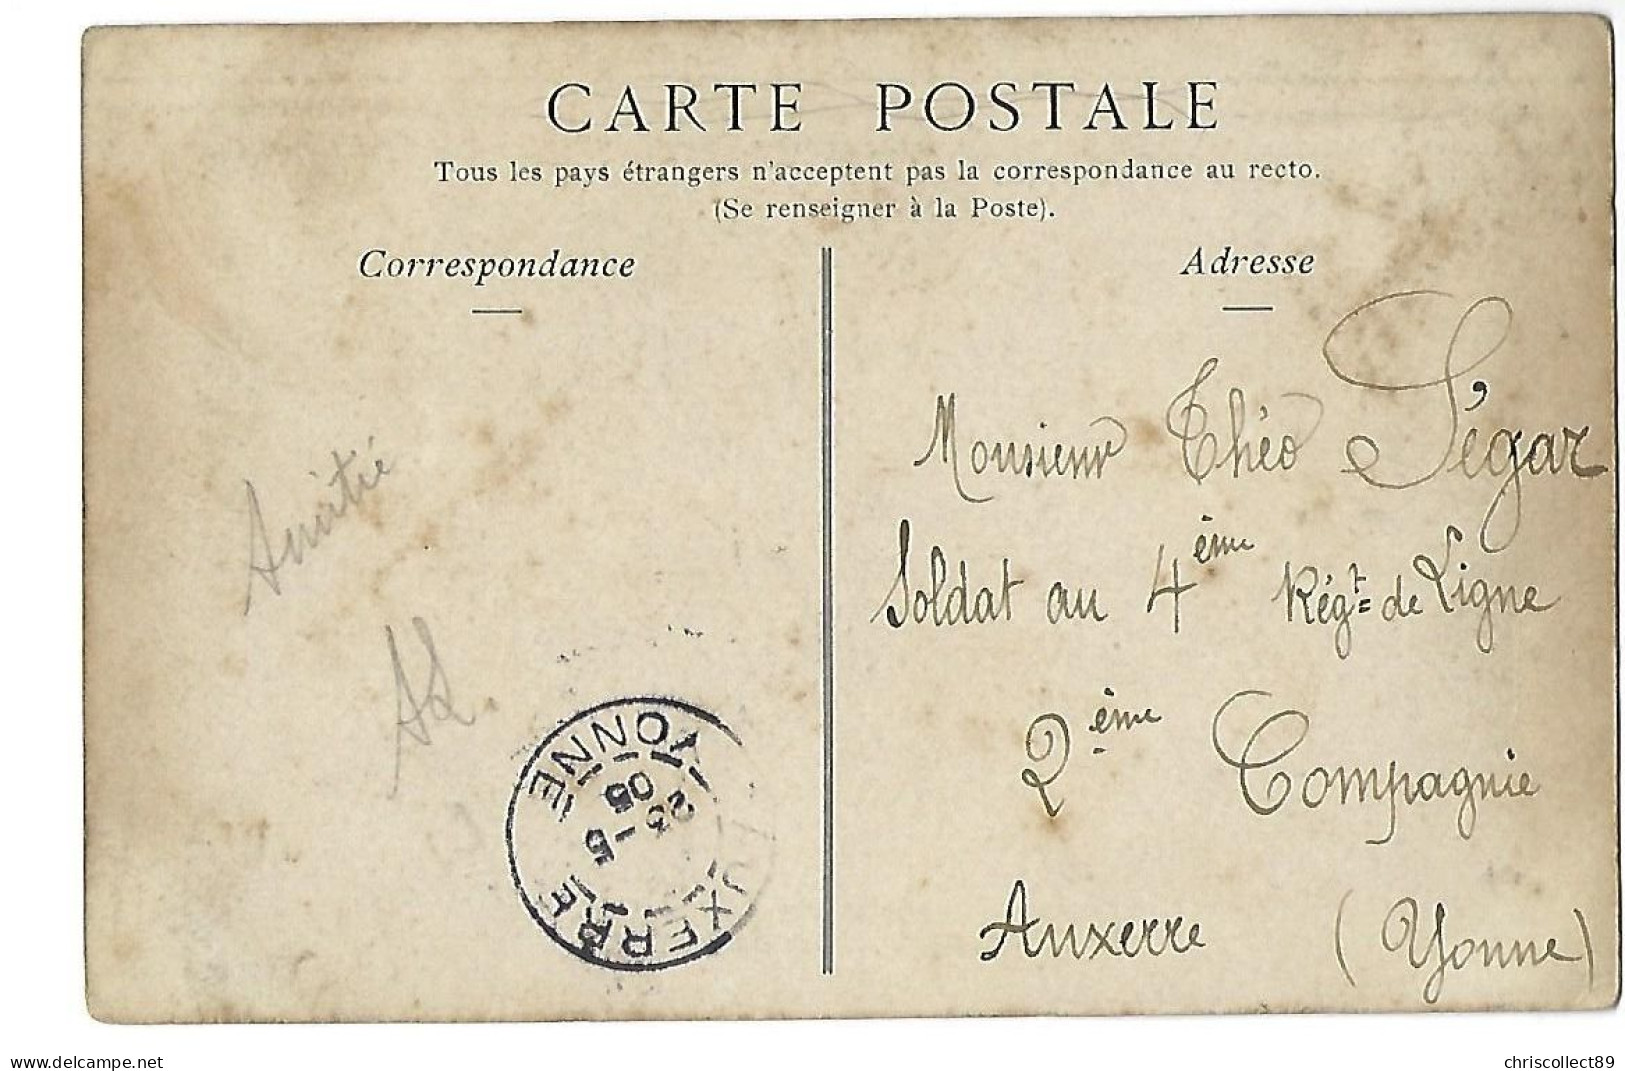 CARTE POSTALE
Tous les pays étrangers n'acceptent pas la correspondance au recto.
(Se renseigner à la Poste).
Correspondance
Adresse
Monsieur Théo Ségar
Soldat au 4ème Régt de Ligne
2ème Compagnie
Auxerre (Yonne)
Amitié
AUXERRE
YONNE
23-5
05
delcampe.net
chriscollect89